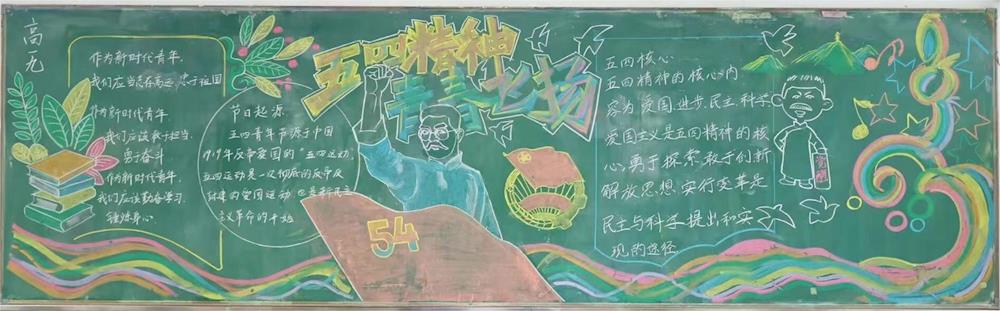 高一九
作为新时代青年，
我们应当志存高远，忠于祖国
作为新时代青年
我们应该敢于担当，
勇于奋斗
作为新时代青年，
我们应该勤奋学习
锤炼身心。
节日起源
五四青年节源于中国
1919年反帝爱国的“五四运动”，
五四运动是一次彻底的反帝反
封建的爱国运动，也是新民主
主义革命的开始
五四精神
青春飞扬
54
五四核心
五四精神的核心内
容为爱国、进步、民主、科学，
爱国主义是五四精神的核
心，勇于探索、敢于创新
解放思想、实行变革是
民主与科学提出和实
现的途径